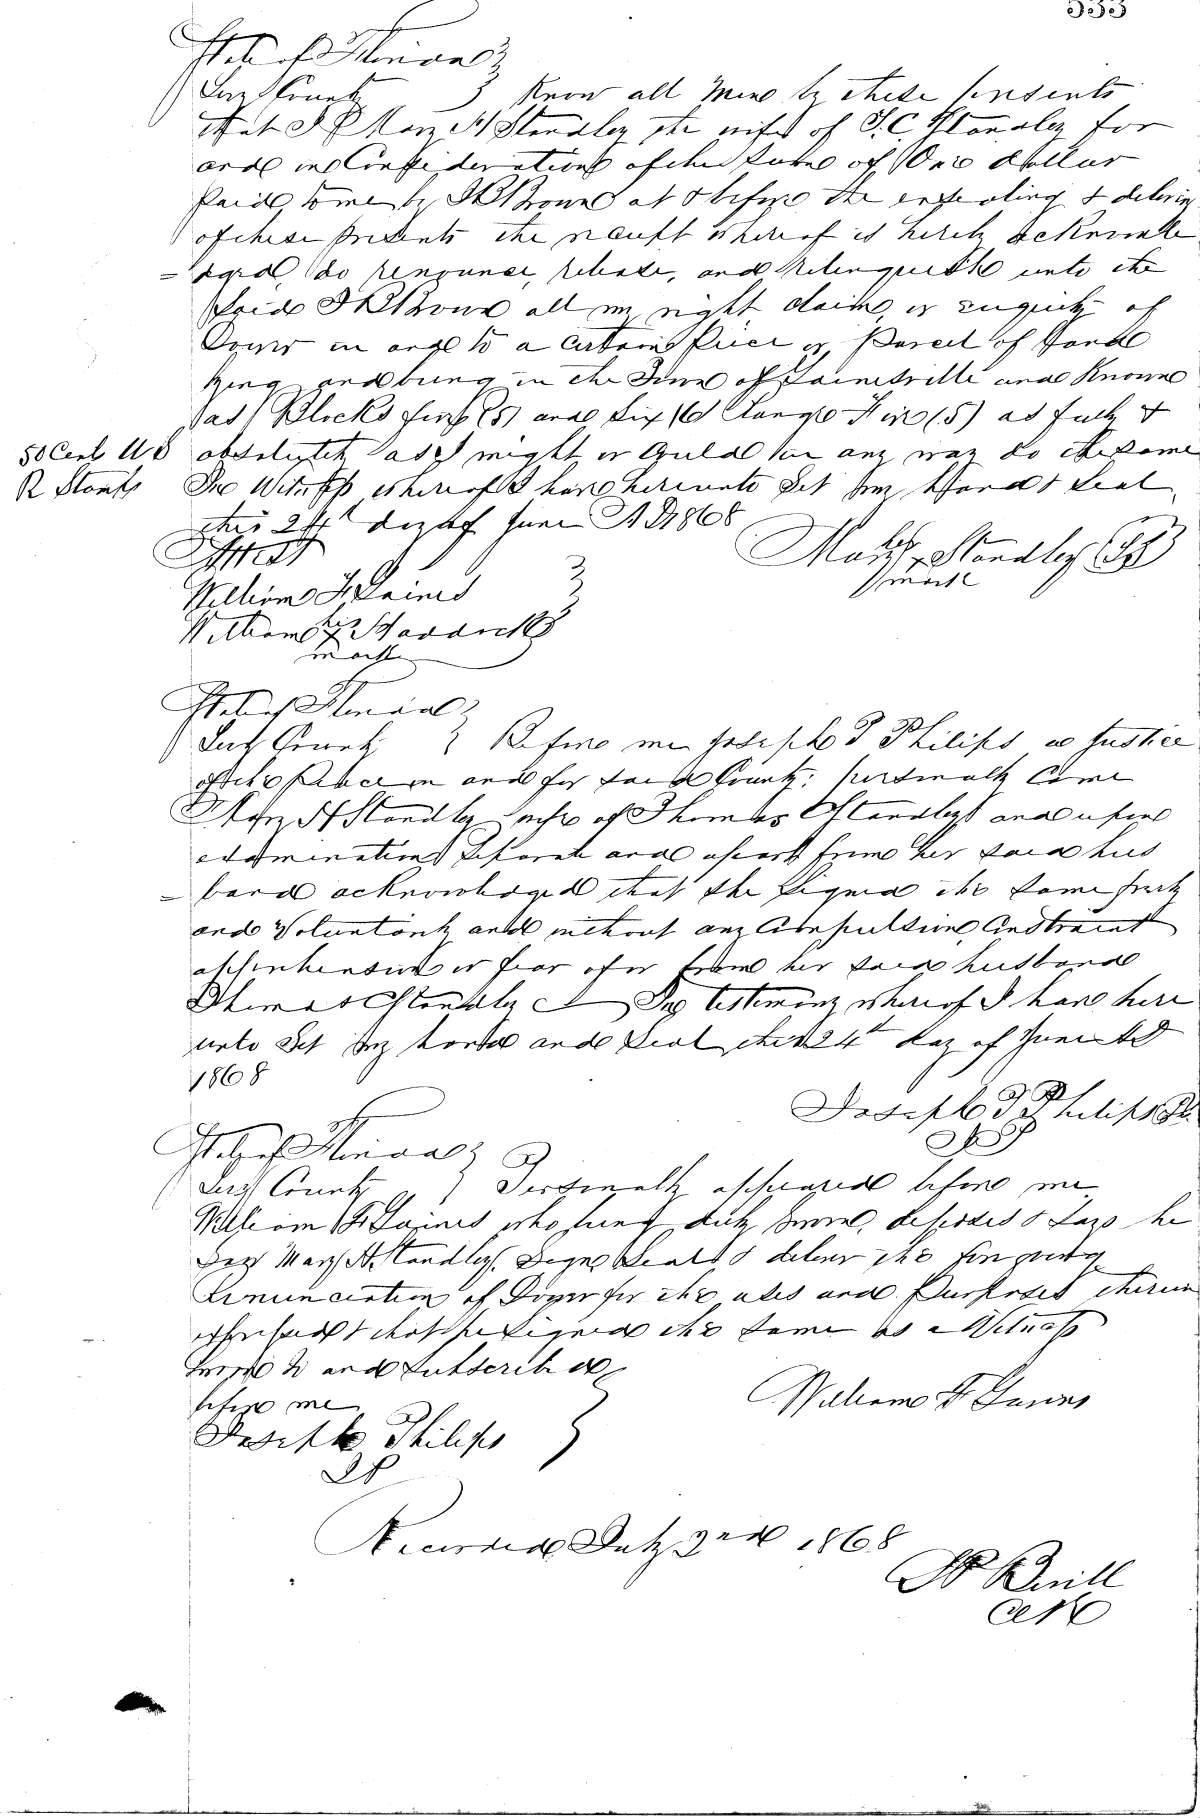 533
State of Florida
Levy County Know all Men by these presents
that I Mary H Standley the wife of T. C Standley for
and in Consideration of the sum of One dollar
Paid to me by Brown at & before the ensealing & delivery
of these presents the receipt whereof is hereby acknowle
= dged, do renounce, release, and relinquish unto the
Said Brown all my right, claim, or enquity of
Dower in and to a certain Piece or Parcel of Land
lying and being in the Town of Gainesville and Known
as Blocks five (5) and Six (6) Range Five (5) as fully &
50 Cent U S absolutely as I might or Could in any way do the same
R Stamp In Witness whereof I have hereunto Set my Hand & Seal
this 24th day of June A D 1868
Attest Mary her x mark Standley
William F. Gaines
William his x mark Haddock
State of Florida
Levy County Before me Joseph T Philips a Justice
of the Peace in and for said County; personally Came
Mary H Standley wife of Thomas C Standley and upon
examination Seperate and apart from her said hus
= band acknowledged that she Signed the same freely
and Voluntarily and without any Compulsion, Constraint
apprehension or fear of or from her said husband
Thomas C Standley In testimony whereof I have here
unto Set my hand and Seal this 24th day of June AD
1868
Joseph T Philips
State of Florida
Levy County Personally appeared before me
William F Gaines who being duly sworn, deposes & says he
Saw Mary H. Standley Sign Seal & deliver the foregoing
renunciation of Dower for the uses and Purposes therein
expressed & that he Signed the same as a Witness
Sworn to and subscribed
before me William F Gaines
Joseph Philips
J P
Recorded July 2nd 1868
Clk